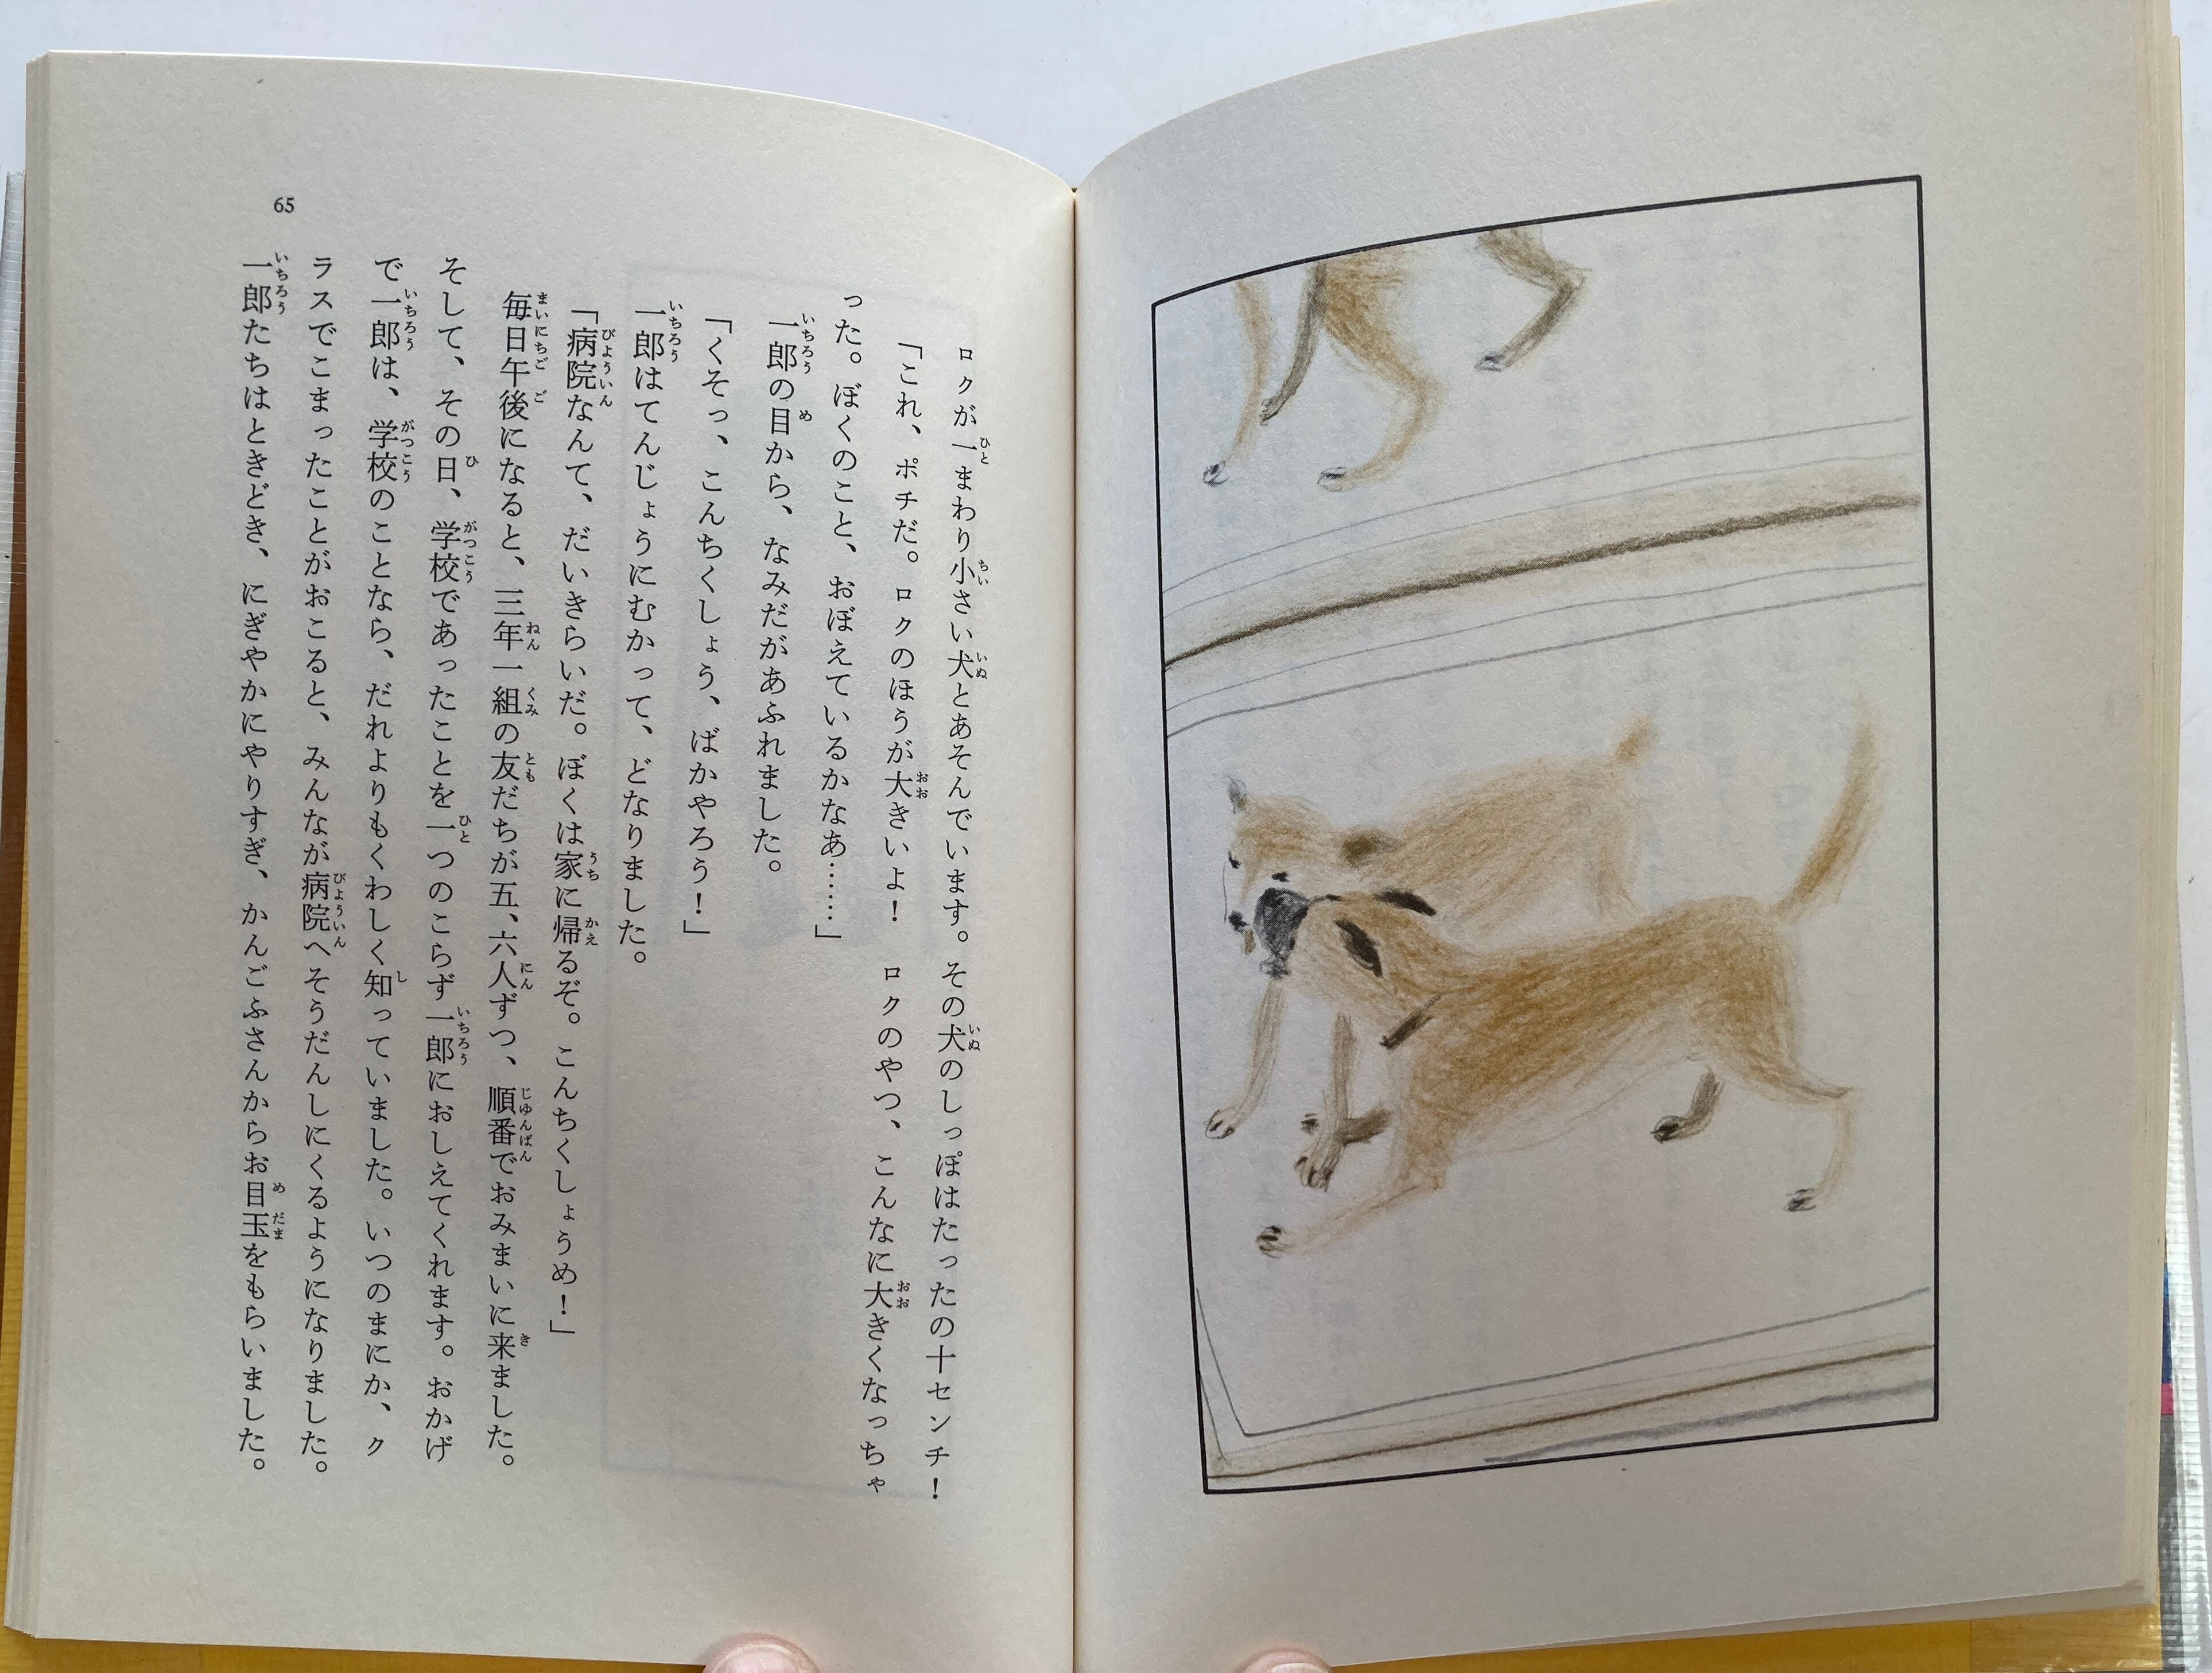 ロクが一まわり小さい犬とあそんでいます。その犬のしっぽはたったの十センチ!
「これ、ポチだ。ロクのほうが大きいよ! ロクのやつ、こんなに大きくなっちゃ
った。ぼくのこと、おぼえているかなあ……」
一郎の目から、なみだがあふれました。
「くそっ、こんちくしょう、ばかやろう!」
一郎はてんじょうにむかって、どなりました。
「病院なんて、だいきらいだ。ぼくは家に帰るぞ。こんちくしょうめ!」
毎日午後になると、三年一組の友だちが五、六人ずつ、順番でおみまいに来ました。
そして、その日、学校であったことを一つのこらず一郎におしえてくれます。おかげ
で一郎は、学校のことなら、だれよりもくわしく知っていました。いつのまにか、ク
ラスでこまったことがおこると、みんなが病院へそうだんしにくるようになりました。
一郎たちはときどき、にぎやかにやりすぎ、かんごふさんからお目玉をもらいました。
65